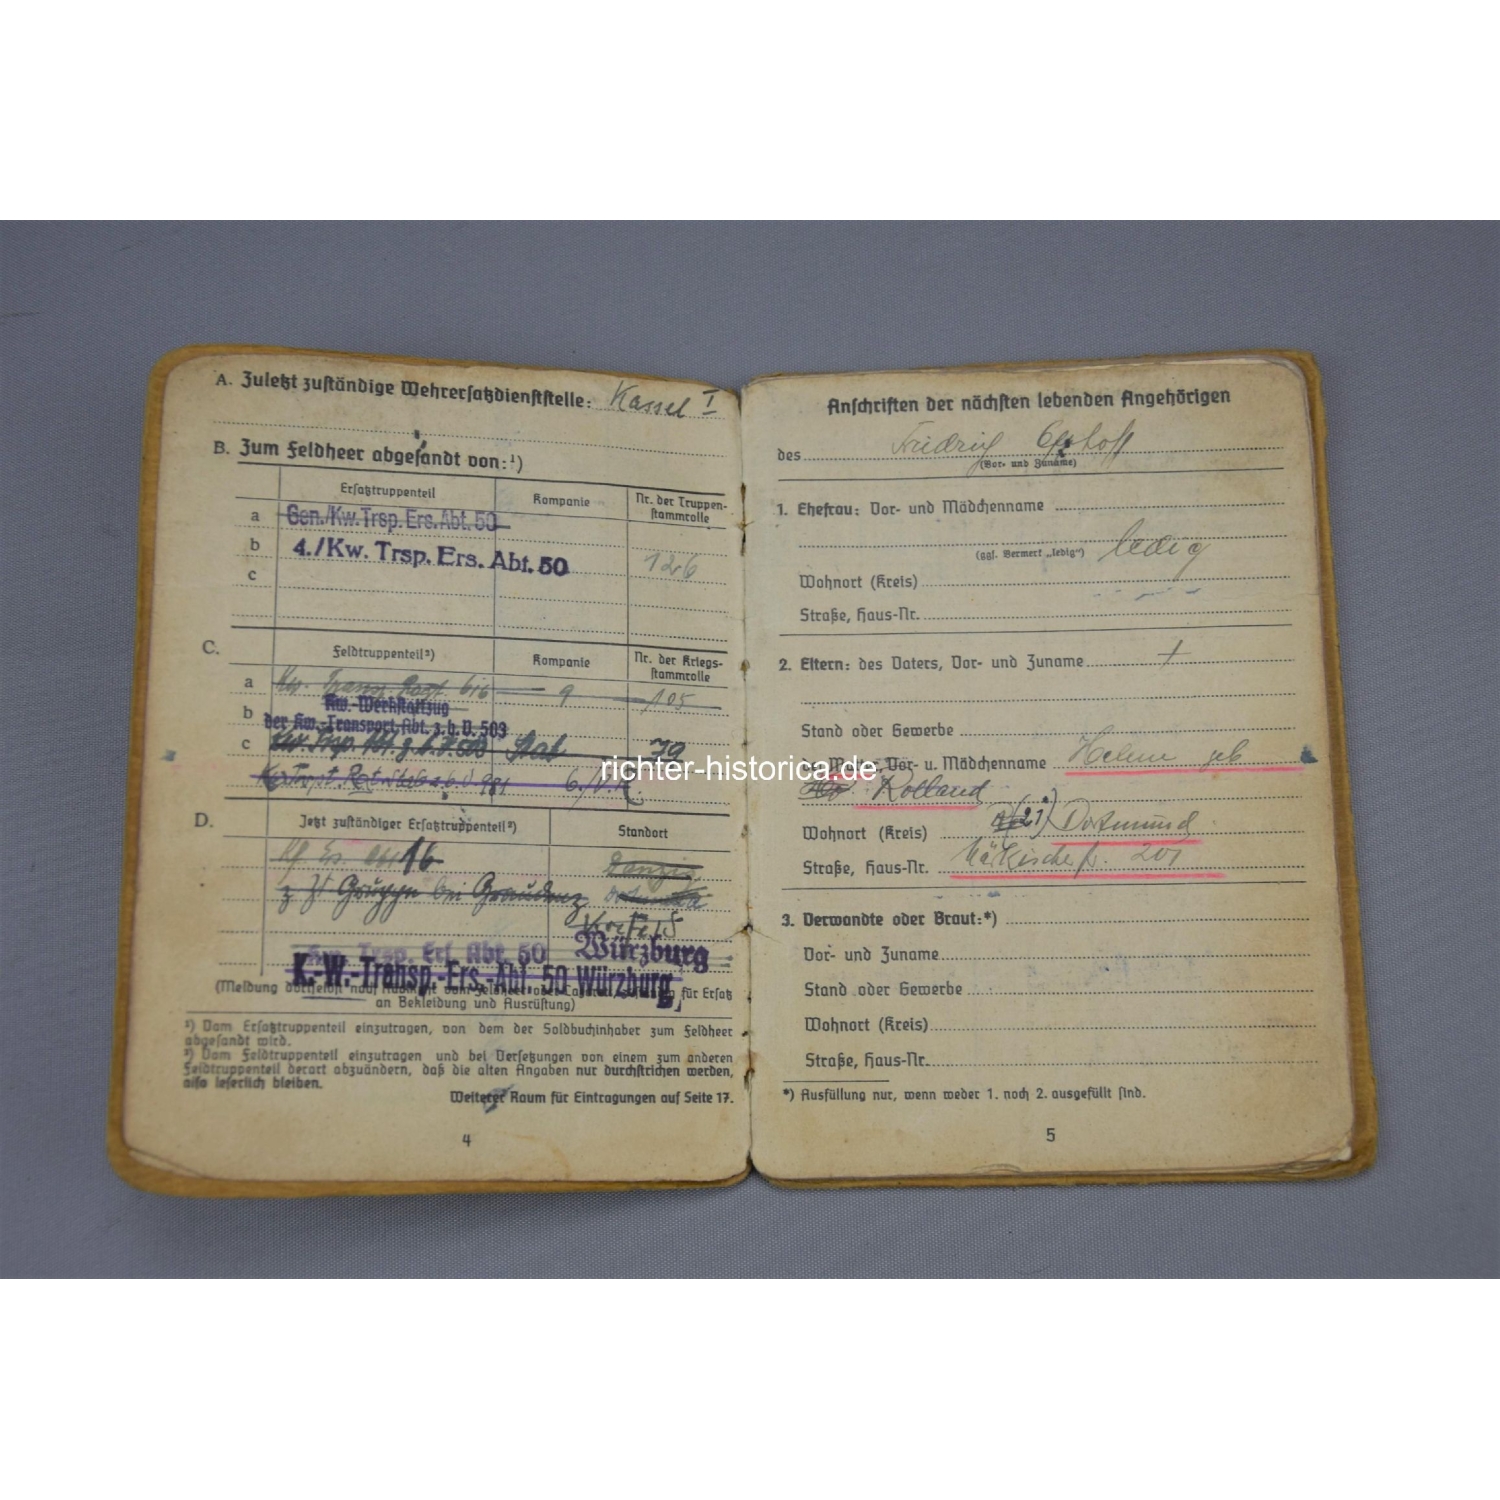 A. Zuletzt zuständige Wehrersatzdienststelle: Kassel I
B. Zum Feldheer abgesandt von:¹)
Ersatztruppenteil Kompanie Nr. der Truppen-
stammrolle
a Gen./Kw. Trsp. Ers. Abt. 50
b 4./Kw. Trsp. Ers. Abt. 50 126
c
C. Feldtruppenteil²) Kompanie Nr. der Kriegs-
stammrolle
a Kw. Transp. Regt. 616 9 105
Kw.-Werkstattzug
b der Kw.-Transport-Abt. z. b. V. 503
c Stab 79
D. Jetzt zuständiger Ersatztruppenteil²) Standort
16 Danzig
Gruppe bei Graudenz
Kw. Trsp. Ers. Abt. 50 Würzburg
K.-W.-Transp.-Ers.-Abt. 50 Würzburg
(Meldung für Ersatz
an Bekleidung und Ausrüstung)
¹) Vom Ersatztruppenteil einzutragen, von dem der Soldbuchinhaber zum Feldheer
abgesandt wird.
²) Vom Feldtruppenteil einzutragen und bei Versetzungen von einem zum anderen
Feldtruppenteil derart abzuändern, daß die alten Angaben nur durchstrichen werden,
also leserlich bleiben.
Weiterer Raum für Eintragungen auf Seite 17.
4
Anschriften der nächsten lebenden Angehörigen
des Friedrich
(Vor- und Zuname)
1. Ehefrau: Vor- und Mädchenname
(ggf. Vermerk „ledig“) ledig
Wohnort (Kreis)
Straße, Haus-Nr.
2. Eltern: des Vaters, Vor- und Zuname
Stand oder Gewerbe
der Mutter, Vor- u. Mädchenname Helene geb
Rolland
Wohnort (Kreis) (21) Dortmund
Straße, Haus-Nr. Märkische str. 201
3. Verwandte oder Braut:*)
Vor- und Zuname
Stand oder Gewerbe
Wohnort (Kreis)
Straße, Haus-Nr.
*) Ausfüllung nur, wenn weder 1. noch 2. ausgefüllt sind.
5
richter-historica.de